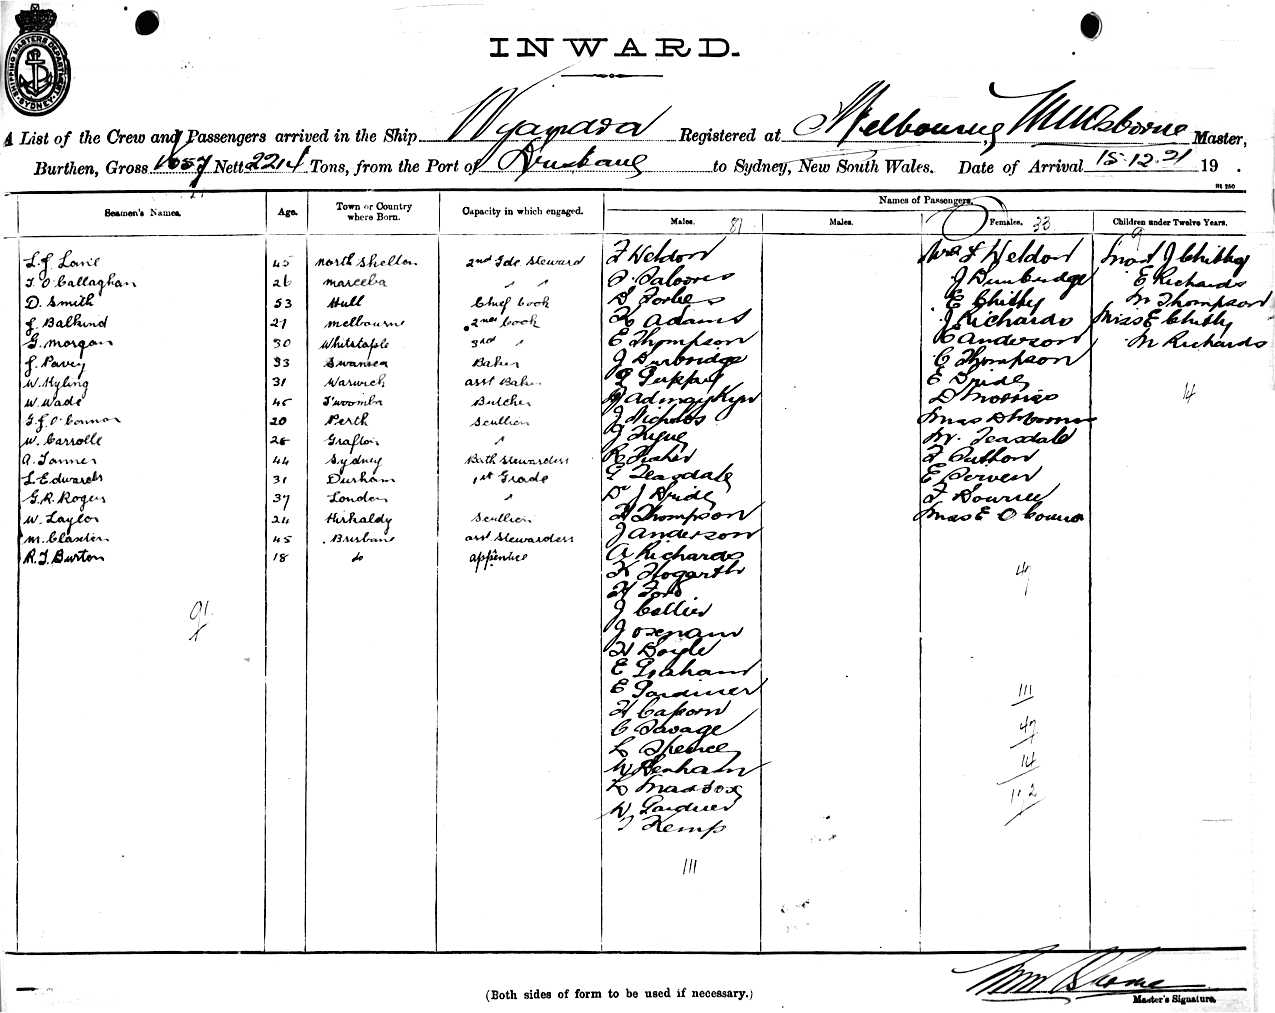 SHIPPING MASTERS DEPARTMENT SYDNEY
INWARD.
A List of the Crew and Passengers arrived in the Ship Wyandra Registered at Melbourne, Master,
Burthen, Gross Nett 2214 Tons, from the Port of Brisbane to Sydney, New South Wales. Date of Arrival 15.12.21 19 .
Seamen's Names. Age. Town or Country where Born. Capacity in which engaged. Names of Passengers.
Males. 81 Males. Females. 33 Children under Twelve Years. 9
45 North Shields 2nd Steward F Weldon Mrs F Weldon Mast J Chitty
T O'Callaghan 26 Mareeba " " J Dunbridge E Richards
D. Smith 53 Hull Chief Cook D Forbes E Chitty M Thompson
J. Balkind 27 Melbourne 2nd Cook H Adams J Richards Miss E Chitty
G. Morgan 30 Whitstable 3rd " E Thompson C Anderson M Richards
J. Pavey 33 Swansea Baker J Durbridge C Thompson
W. Kyling 31 Warwick asst Baker E Bride
W. Wade 45 T'woomba Butcher D Morris 14
G.J. O'Connor 20 Perth Scullion J Nicholas
W. Carrolle 26 Grafton " M. Teasdale
A. Tanner 44 Sydney Bath Stewardess R Fisher
L Edwards 31 Durham 1st Grade G Teasdale
G.R. Rogers 37 London " Dr J Bride F Downie
W. Taylor 24 Kirkaldy Scullion H Thompson Miss E O'Connor
45 Brisbane asst Stewardess J Anderson
R.J. Burton 18 do apprentice A Richards
K Hogarth 47
H Ford
J Collier
J Oxenam
H Boyle
E Graham
E Gardiner 111
H Caporn
C Savage 47
L Spence
W Benham 14
L Maddox 172
W Gardner
T Kemp
111
(Both sides of form to be used if necessary.)
Master's Signature.